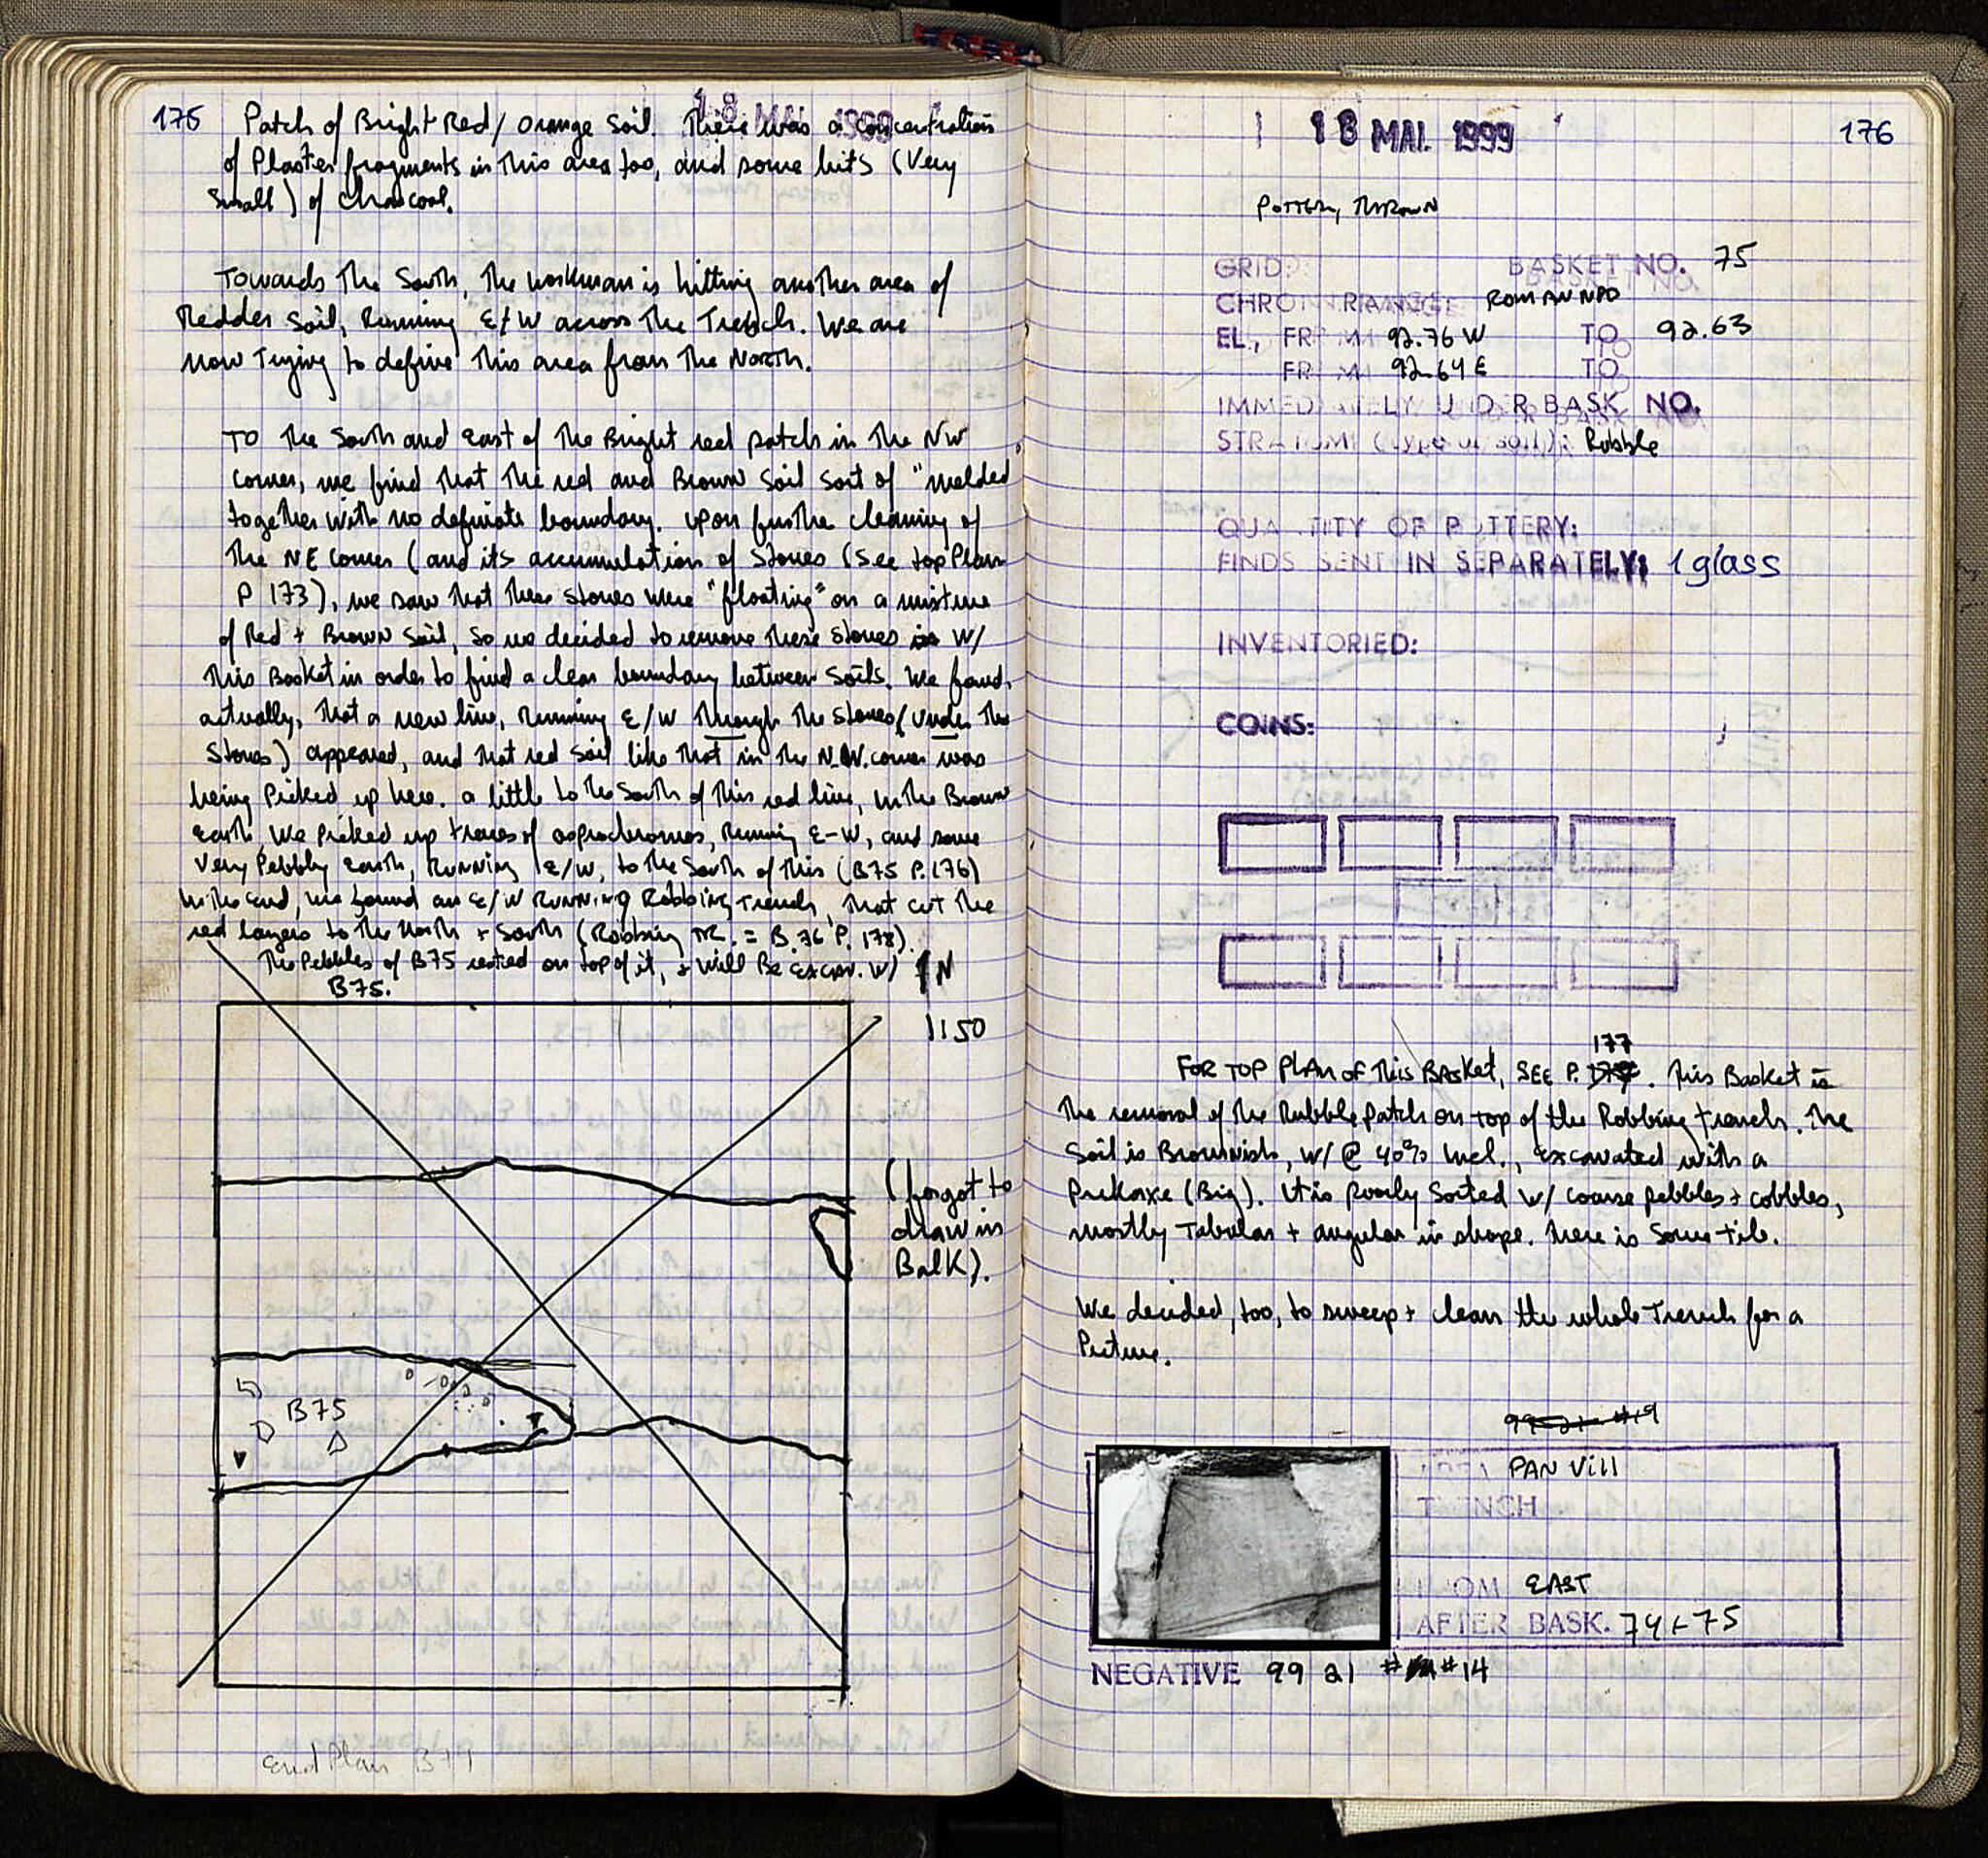 175
18 MAI 1999
Patch of Bright Red/ orange Soil. There was a concentration
of Plaster fragments in this area too, and some bits (Very
Small) of charcoal.
Towards the South, the workman is hitting another area of
Redder Soil, Running E/W across the Trench. We are
now Trying to define this area from the North.
To the South and East of the Bright red patch in the NW
corner, we find that the red and Brown Soil sort of "melded"
together with no definate boundary. Upon further cleaning of
the NE corner (and its accumulation of Stones (see top Plan
P 173), we saw that these stones were "floating" on a mixture
of Red + Brown Soil, so we decided to remove these stones W/
this Basket in order to find a clear boundary between soils. We found,
actually, that a new line, Running E/W through the stones (under the
Stones) appeared, and that red soil like that in the N.W. corner was
being Picked up here. a little to the South of this red line, in the Brown
Earth, we picked up traces of asprochomos, Running E-W, and some
Very Pebbly Earth, Running E/W, to the South of this (B75 P. 176)
In the end, we found an E/W Running Robbing Trench, that cut the
red layers to the North + South (Robbing TR. = B.76 P. 178).
The Pebbles of B75 rested on top of it, + will Be excav. w/
B75.
N
1:50
(forgot to
draw in
Balk).
B75
End Plan B74
18 MAI 1999
176
Pottery, Thrown
GRID:
BASKET NO. 75
CHRON. RANGE: ROMAN NPD
EL., FROM 92.76 W TO 92.63
FROM 92.64 E TO
IMMEDIATELY UNDER BASK NO.
STRATUM (type of soil): Rubble
QUANTITY OF POTTERY:
FINDS SENT IN SEPARATELY: 1 glass
INVENTORIED:
COINS:
177
FOR TOP PLAN OF This BASket, SEE P. . This Basket is
the removal of the Rubble patch on top of the Robbing trench. The
Soil is Brownish, w/ @ 40% Incl., excavated with a
Pickaxe (Big). It is poorly Sorted w/ coarse pebbles + cobbles,
mostly Tabular + angular in shape. There is some tile.
We decided, too, to sweep + clean the whole Trench for a
Picture.
99-21- #19
AREA PAN VIII
TRENCH
FROM EAST
AFTER BASK. 74+75
NEGATIVE 99 21 # #14